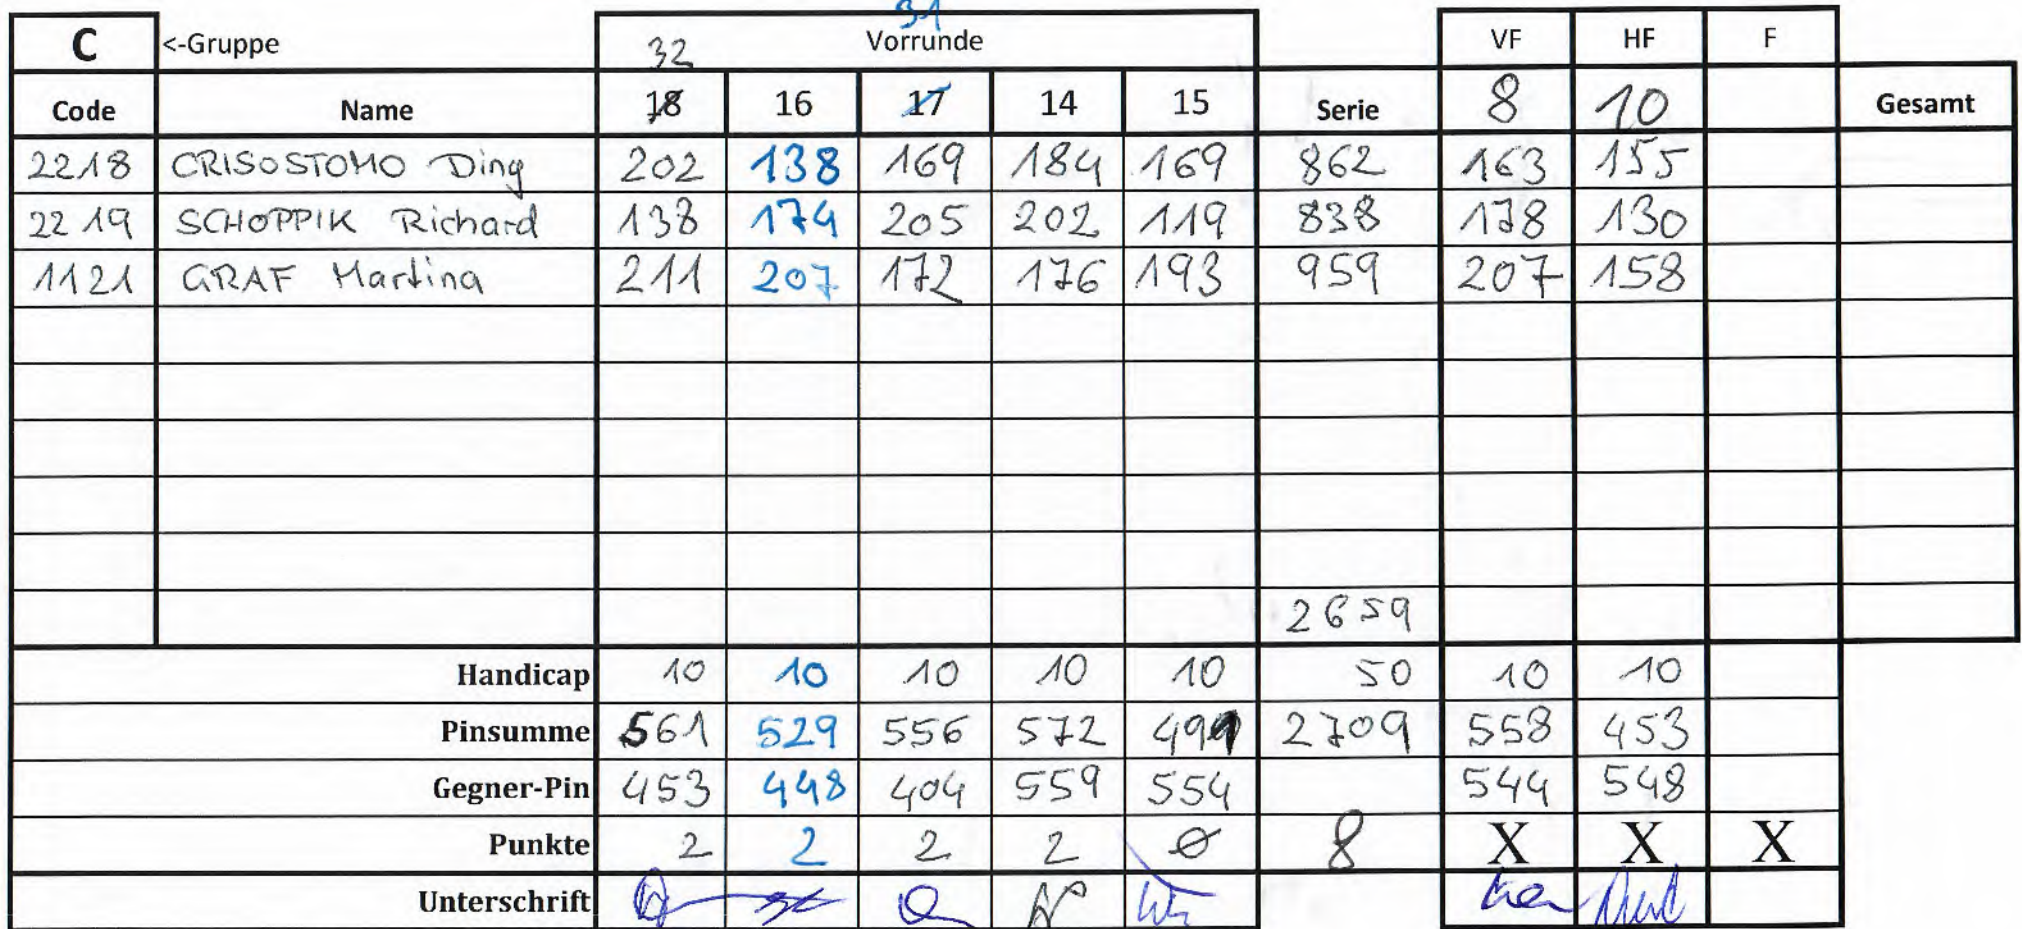 31
C <-Gruppe 32 Vorrunde VF HF F
Code Name 18 16 17 14 15 Serie 8 10 Gesamt
2218 CRISOSTOMO Ding 202 138 169 184 169 862 163 155
2219 SCHOPPIK Richard 138 174 205 202 119 838 178 130
1121 GRAF Martina 211 207 172 176 193 959 207 158
2659
Handicap 10 10 10 10 10 50 10 10
Pinsumme 561 529 556 572 491 2709 558 453
Gegner-Pin 453 448 404 559 554 544 548
Punkte 2 2 2 2 Ø 8 X X X
Unterschrift